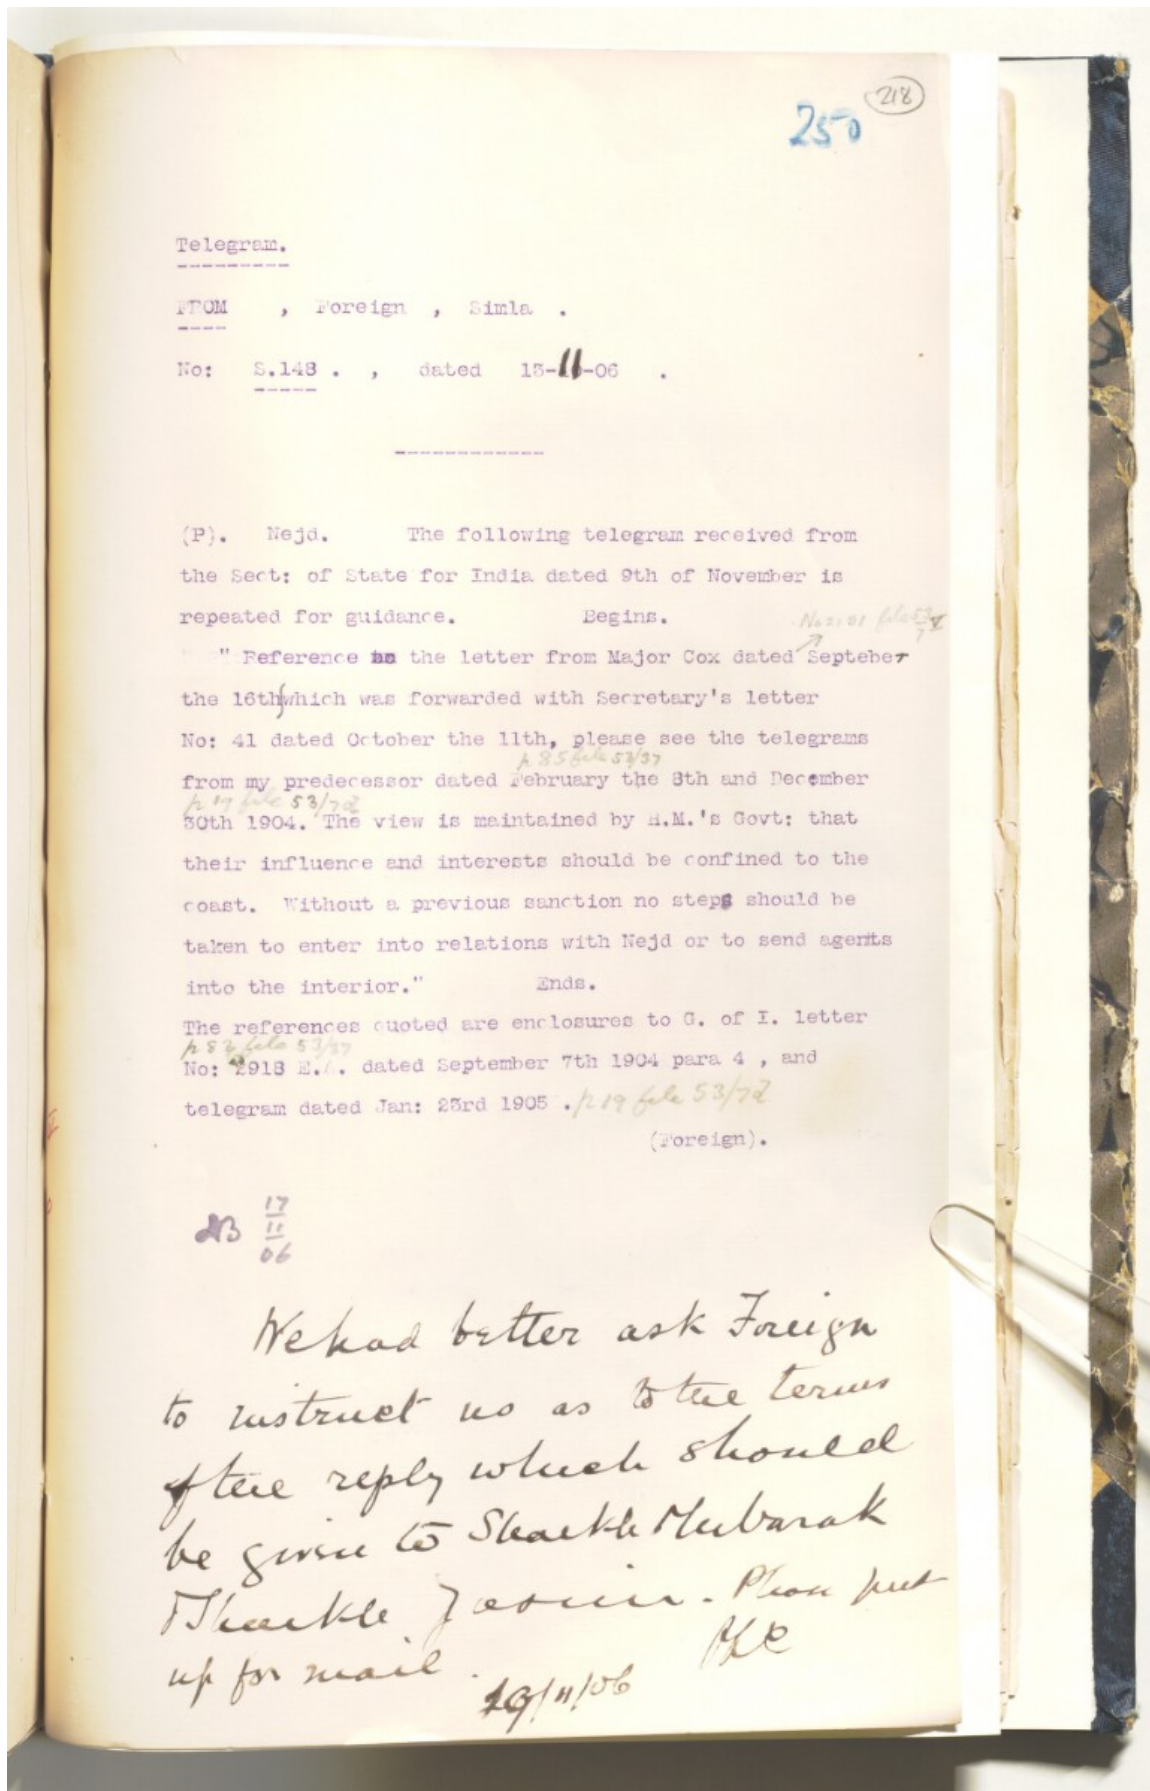 218
250
Telegram.
FROM , Foreign , Simla .
No: S.148 . , dated 13-11-06 .
(P). Nejd. The following telegram received from
the Sect: of State for India dated 9th of November is
repeated for guidance. Begins.
No 2181 file 53/7 V
" Reference to the letter from Major Cox dated Septeber
the 16th which was forwarded with Secretary's letter
No: 41 dated October the 11th, please see the telegrams
p 85 file 53/37
from my predecessor dated February the 8th and December
p 19 file 53/7 d
30th 1904. The view is maintained by H.M.'s Govt: that
their influence and interests should be confined to the
coast. Without a previous sanction no steps should be
taken to enter into relations with Nejd or to send agents
into the interior." Ends.
The references quoted are enclosures to G. of I. letter
p 82 file 53/37
No: 2918 E.A. dated September 7th 1904 para 4 , and
telegram dated Jan: 23rd 1905 . p 19 file 53/7 d
(Foreign).
17
11
06
We had better ask Foreign
to instruct us as to the terms
of the reply which should
be given to Shaikh Mubarak
& Shaikh Jasim. Please put
up for mail. PZC
19/11/06